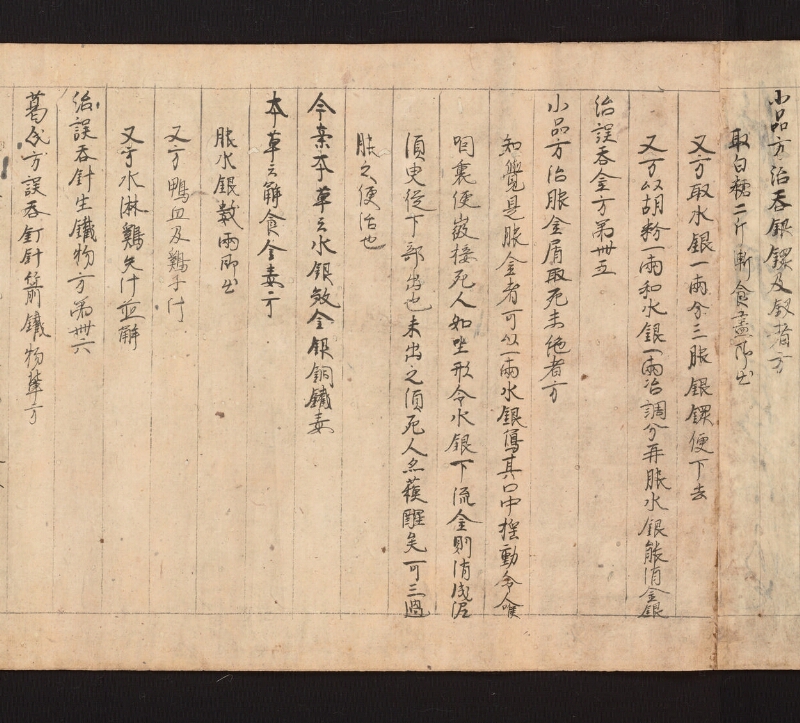 小品方治吞銀鐶及釵者方
取白糖二斤漸食盡即出
又方取水銀一兩分三服銀鐶便下去
又方以胡粉一兩和水銀一兩治調分再服水銀能消金銀
治誤吞金方第卅五
小品方治服金屑取死未絕者方
知覺是服金者可以一兩水銀寫其口中搖動令
咽裏便接死人如坐形令水銀下流金則消成泥
須臾從下部出也未出之須死人忽蘓醒矣可三過
服之便治也
今案本草云水銀煞金銀銅鐵毒
本草云解食金毒方
服水銀數兩即出
又方鴨血及鷄子汁
又方水淋鷄矢汁並解
治誤吞針生鐵物方第卅六
葛氏方誤吞釘針箭鐵物輩方